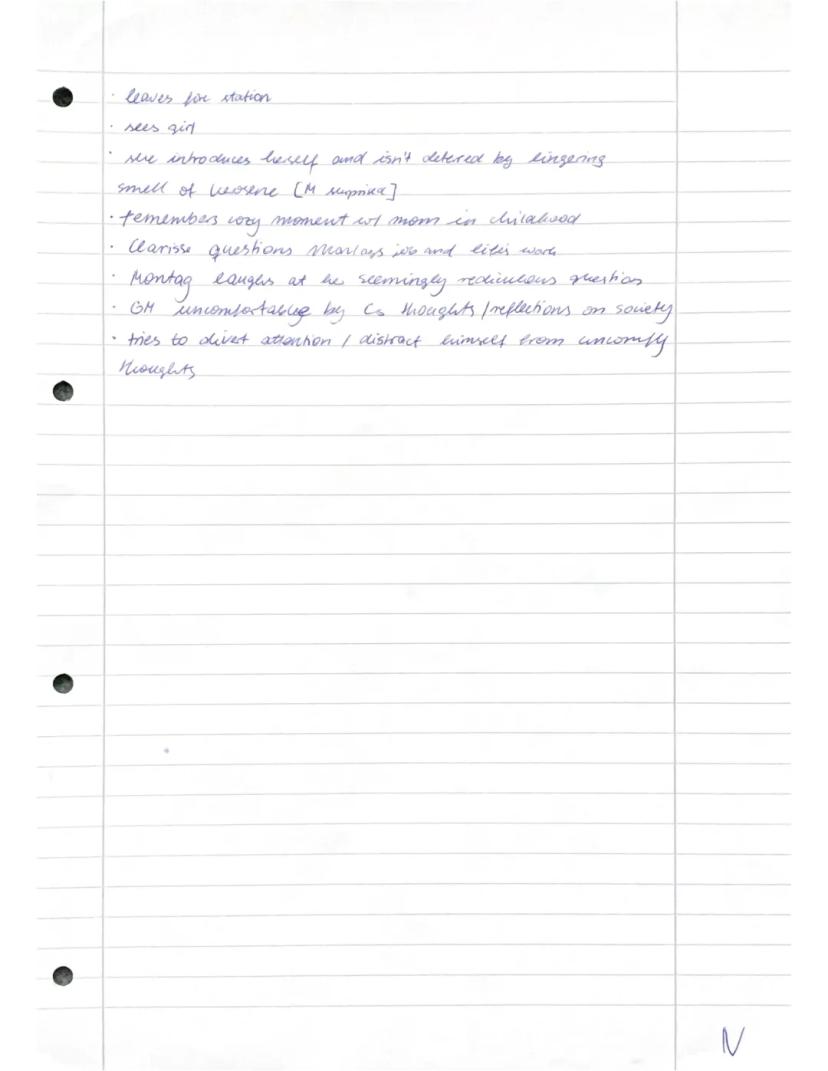 · leaves for station
· sees girl
· she introduces herself and isn't detered by lingering
smell of kerosene [M surprised]
· remembers cozy moment w/ mom in childhood
· Clarisse questions Montags job and work
· Montag laughs at her seemingly rediculous question
· GM uncomfortable by Cs thoughts/reflections on society
· tries to divert attention / distract himself from uncomfy
thoughts
N